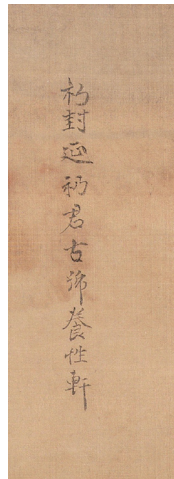 初封延礽君古號養性軒